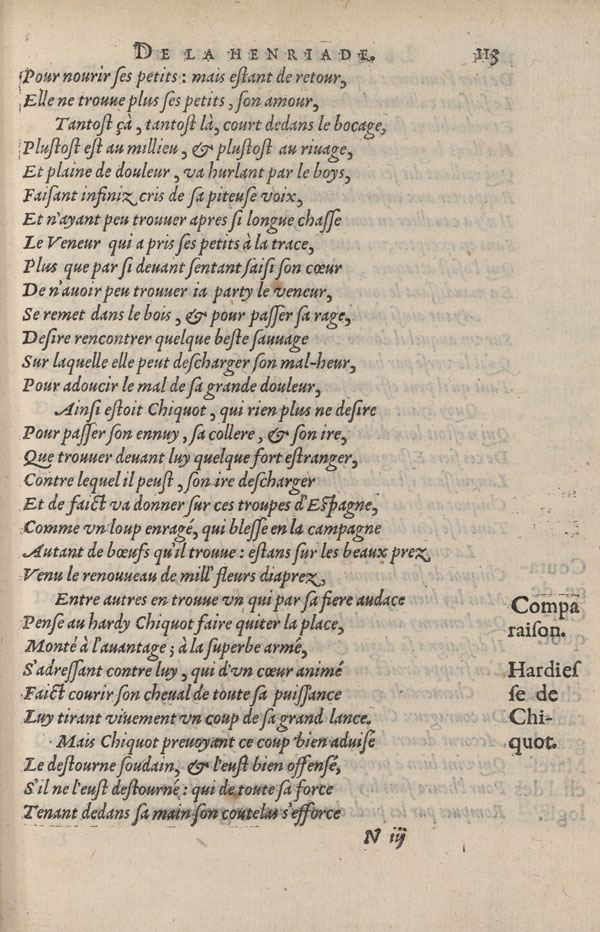 DE LA HENRIADE. 113
Pour nourir ſes petits : mais eſtant de retour,
Elle ne trouue plus ſes petits, ſon amour,
Tantoſt çà, tantoſt là, court dedans le bocage,
Pluſtoſt eſt au millieu, & pluſtoſt au riuage,
Et plaine de douleur, va hurlant par le boys,
Faiſant infiniz cris de ſa piteuſe voix,
Et n'ayant peu trouuer apres ſi longue chaſſe
Le Veneur qui a pris ſes petits à la trace,
Plus que par ſi deuant ſentant ſaiſi ſon cœur
De n'auoir peu trouuer ia party le veneur,
Se remet dans le bois, & pour paſſer ſa rage,
Deſire rencontrer quelque beſte ſauuage
Sur laquelle elle peut deſcharger ſon mal-heur,
Pour adoucir le mal de ſa grande douleur,
Ainſi eſtoit Chiquot, qui rien plus ne deſire
Pour paſſer ſon ennuy, ſa collere, & ſon ire,
Que trouuer deuant luy quelque fort eſtranger,
Contre lequel il peuſt, ſon ire deſcharger
Et de faict va donner ſur ces troupes d'Eſpagne,
Comme vn loup enragé, qui bleſſe en la campagne
Autant de bœufs qu'il trouue : eſtans ſur les beaux prez
Venu le renouueau de mill' fleurs diaprez,
Entre autres en trouue vn qui par ſa fiere audace
Penſe au hardy Chiquot faire quiter la place,
Monté à l'auantage ; à la ſuperbe armé,
S'adreſſant contre luy, qui d'vn cœur animé
Faict courir ſon cheual de toute ſa puiſſance
Luy tirant viuement vn coup de ſa grand lance.
Mais Chiquot preuoyant ce coup bien aduiſé
Le deſtourne ſoudain, & l'euſt bien offenſé,
S'il ne l'euſt deſtourné : qui de toute ſa force
Tenant dedans ſa main ſon coutelas s'efforce
N iij
Compa
raiſon.
Hardieſ
ſe de
Chi-
quot.